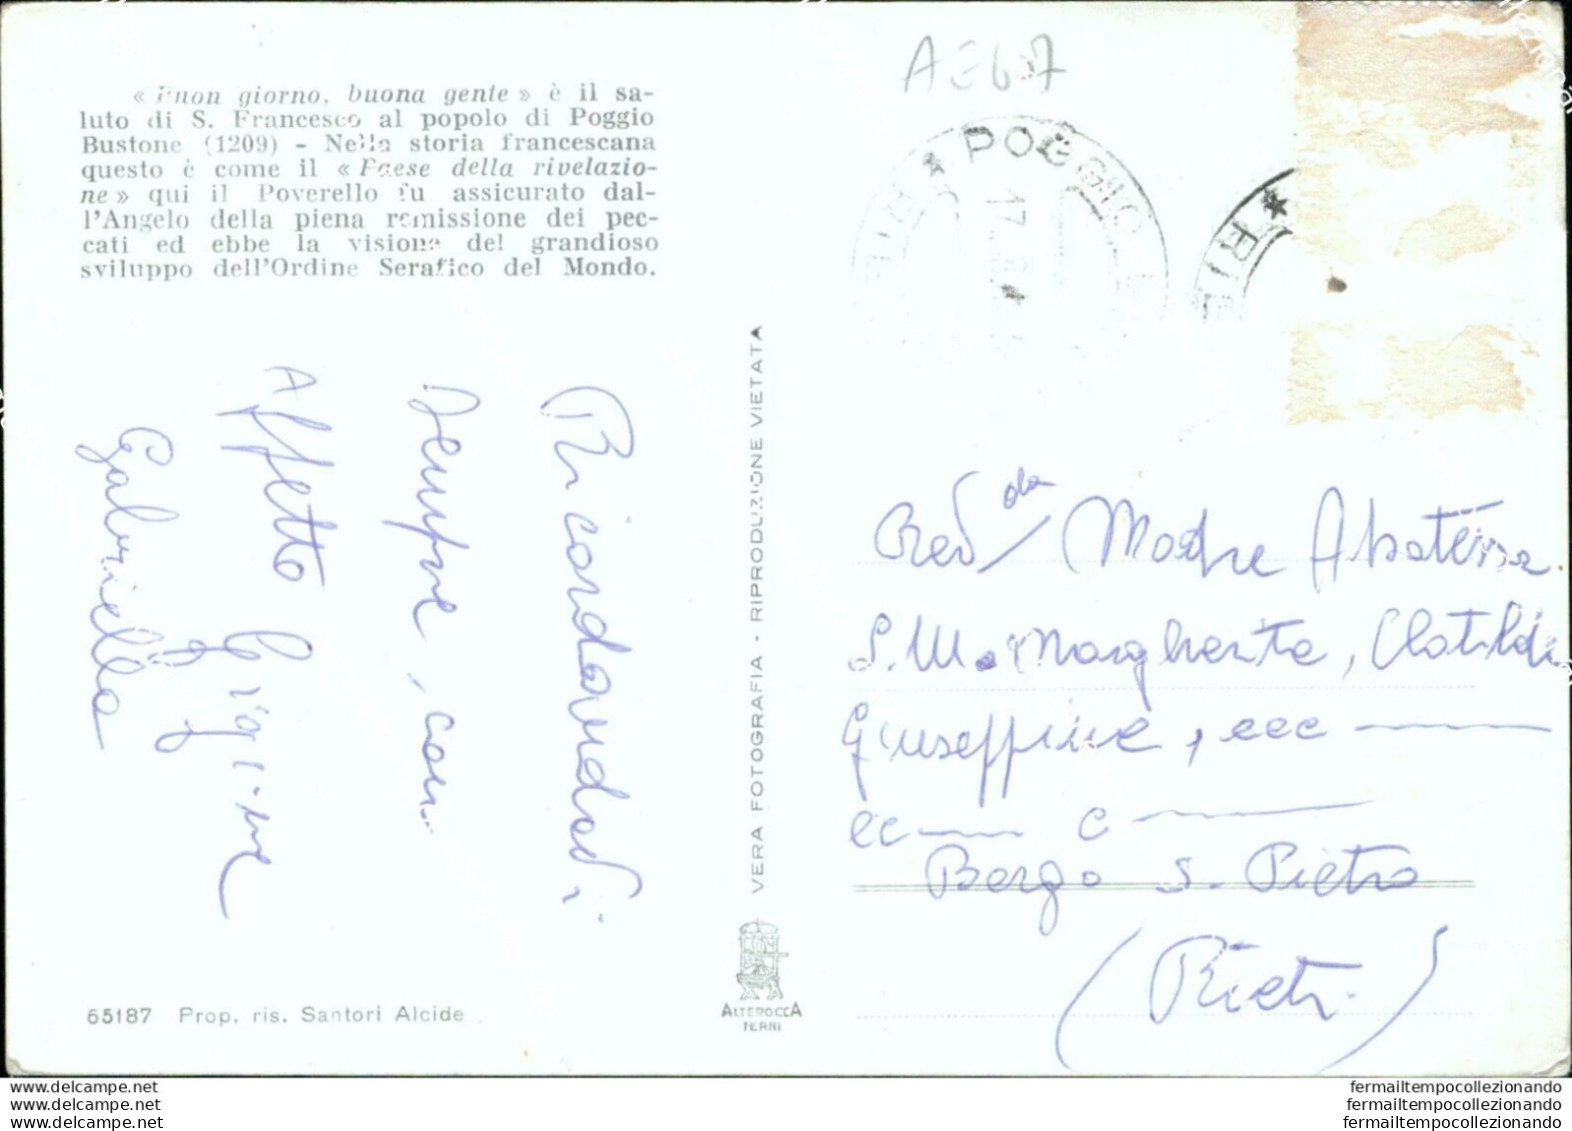 « Buon giorno, buona gente » è il sa-
luto di S. Francesco al popolo di Poggio
Bustone (1209) - Nella storia francescana
questo è come il « Paese della rivelazio-
ne » qui il Poverello fu assicurato dal-
l'Angelo della piena remissione dei pec-
cati ed ebbe la visione del grandioso
sviluppo dell'Ordine Serafico del Mondo.
AE67
★ POGGIO
RIE
17
★ RIE
Ricordandoci
sempre, con
Affetto
Gabriella
VERA FOTOGRAFIA - RIPRODUZIONE VIETATA
Rev da Madre Abatessa
S. M. Margherita, Clotilde
Giuseppine, ecc
ec c
Borgo S. Pietro
(Rieti)
65187 Prop. ris. Santori Alcide
ALTEROCCA
TERNI
delcampe.net
delcampe.net
delcampe.net
fermailtempocollezionando
fermailtempocollezionando
fermailtempocollezionando